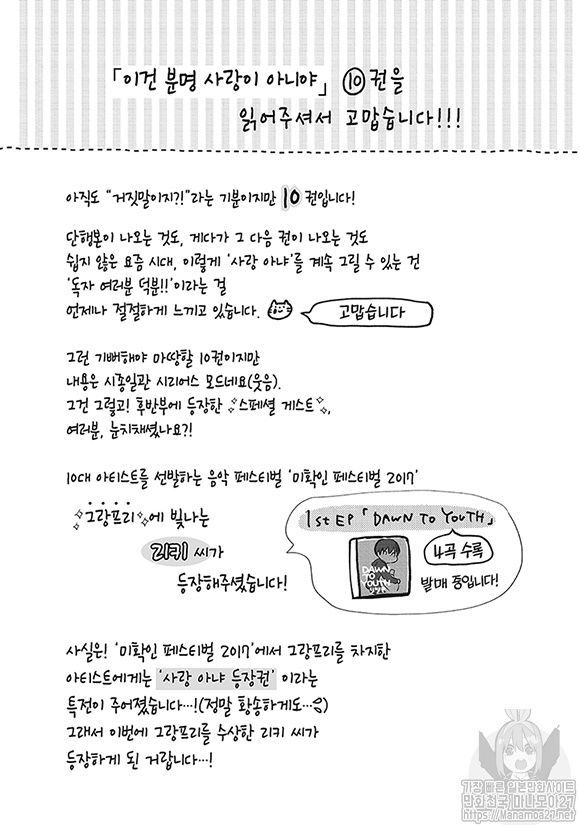 「이건 분명 사랑이 아니야」 ⑩권을
읽어주셔서 고맙습니다!!!
아직도 "거짓말이지?!"라는 기분이지만 10권입니다!
단행본이 나오는 것도, 게다가 그 다음 권이 나오는 것도
쉽지 않은 요즘 시대, 이렇게 '사랑 아냐'를 계속 그릴 수 있는 건
'독자 여러분 덕분!!'이라는 걸
언제나 절절하게 느끼고 있습니다.
고맙습니다
그런 기뻐해야 마땅할 10권이지만
내용은 시종일관 시리어스 모드네요(웃음).
그건 그렇고! 후반부에 등장한 스페셜 게스트,
여러분, 눈치채셨나요?!
10대 아티스트를 선발하는 음악 페스티벌 '미확인 페스티벌 2017'
그랑프리에 빛나는
리키 씨가
등장해주셨습니다!
1st EP 「DAWN TO YOUTH」
4곡 수록
발매 중입니다!
DAWN
TO
YOUTH
사실은! '미확인 페스티벌 2017'에서 그랑프리를 차지한
아티스트에게는 '사랑 아냐 등장권' 이라는
특전이 주어졌습니다…!(정말 황송하게도…)
그래서 이번에 그랑프리를 수상한 리키 씨가
등장하게 된 거랍니다…!
가장 빠른 일본만화사이트
만화천국 마나모아27
https://Manamoa27.net